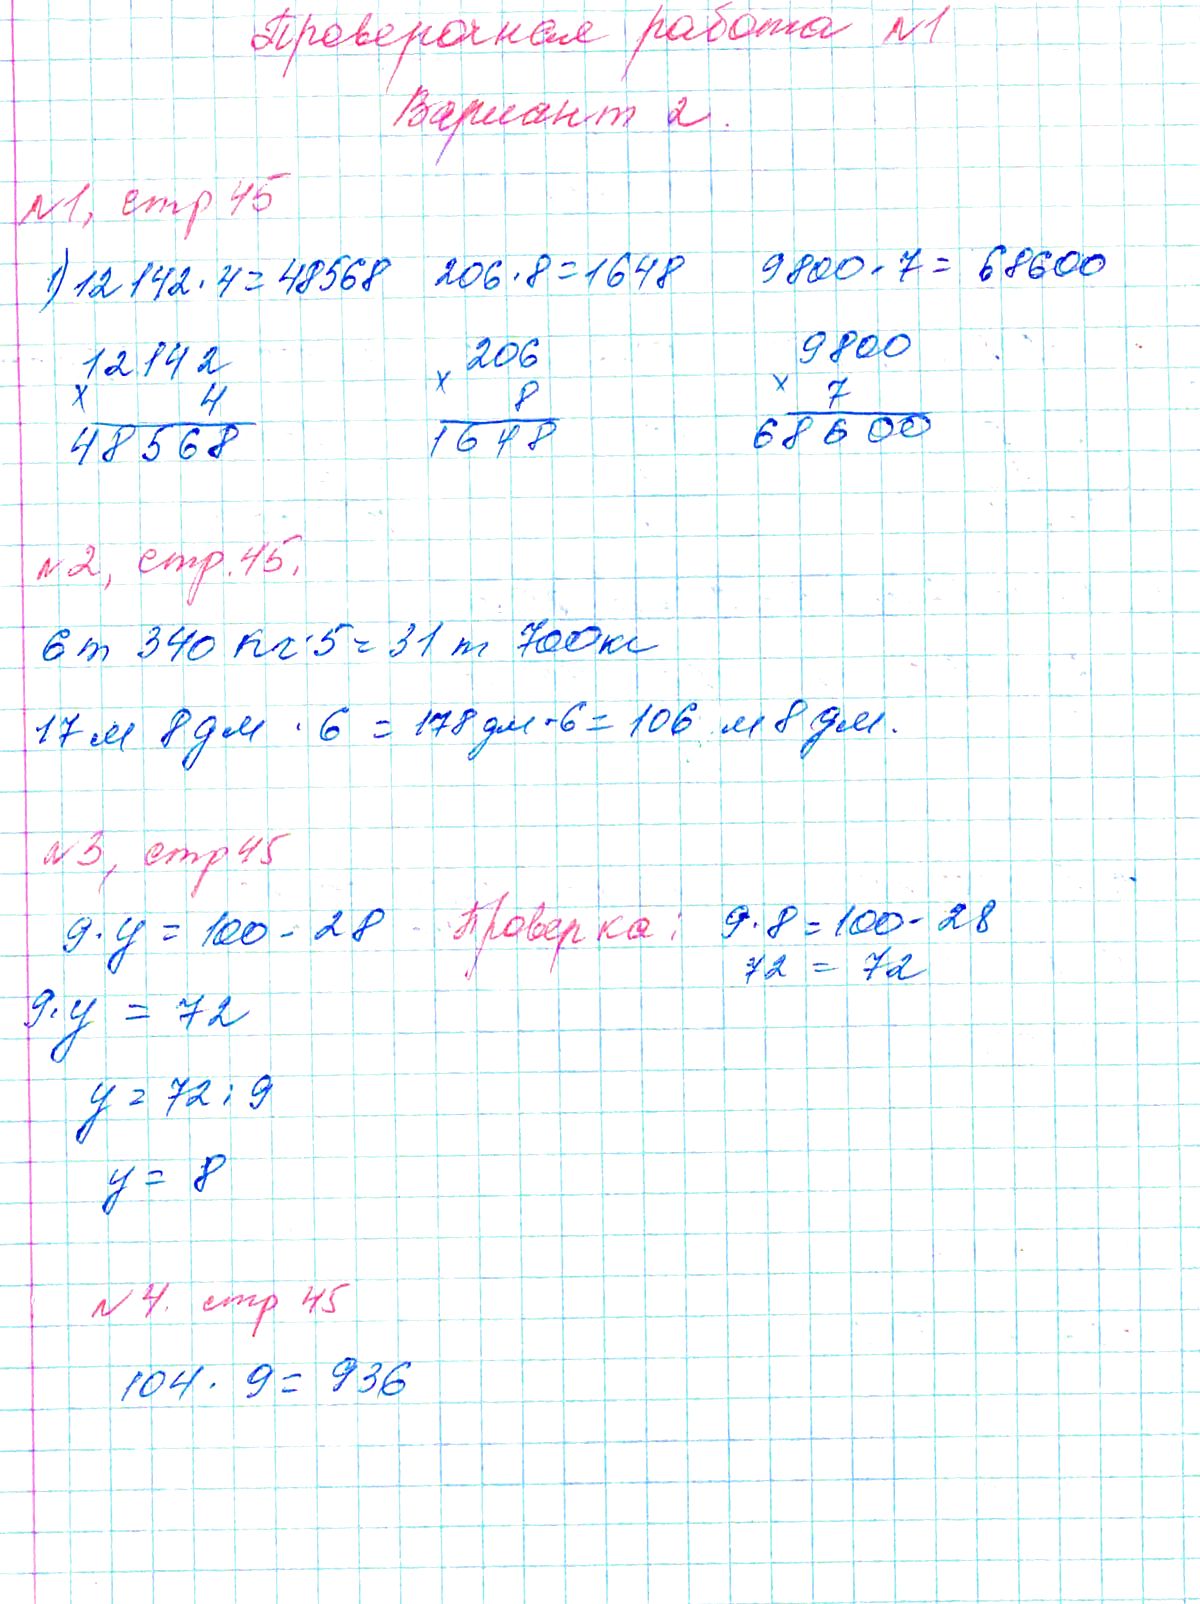 Проверочная работа №1
Вариант 2.
№1, стр 45
1) 12142·4=48568 206·8=1648 9800·7=68600
12142 206 9800
× 4 × 8 × 7
48568 1648 68600
№2, стр.45.
6т 340 кг·5=31т 700кг
17м 8дм·6=178дм·6=106 м 8дм.
№3, стр 45
9·y=100-28 Проверка: 9·8=100-28
72 = 72
9·y = 72
y=72:9
y= 8
№4. стр 45
104·9=936